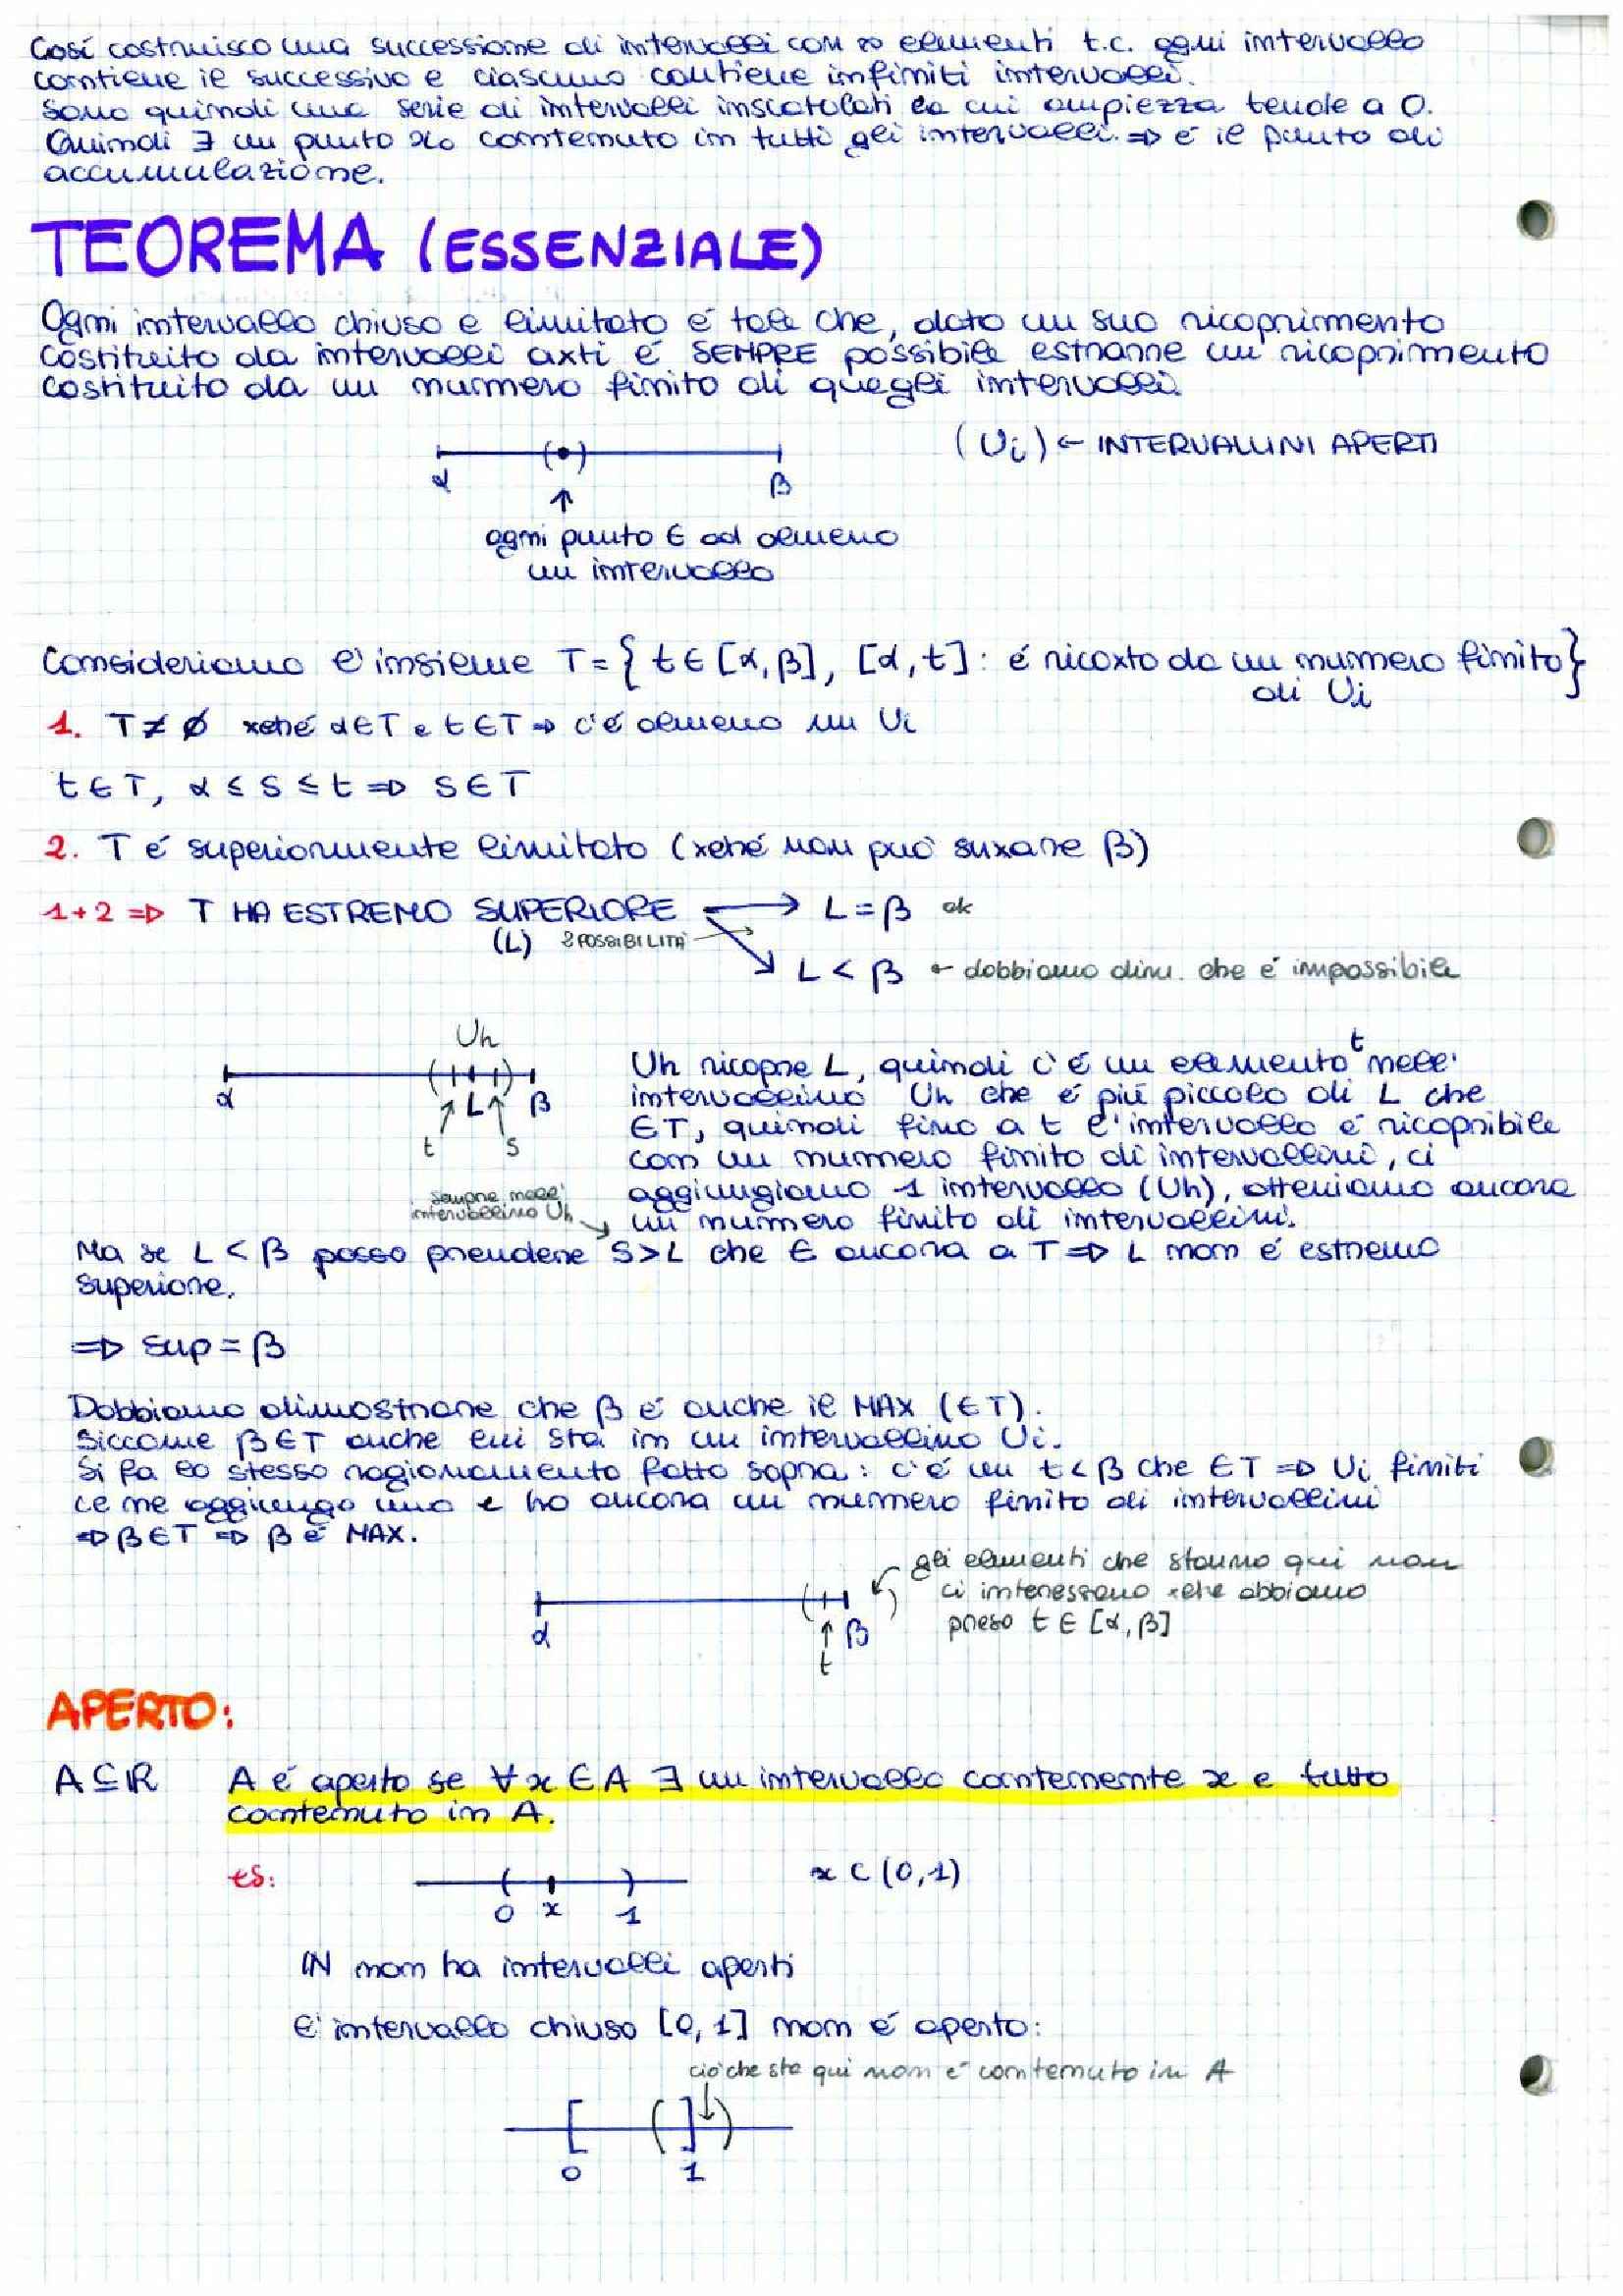 Così costruisco una successione di intervalli con ∞ elementi t.c. ogni intervallo
contiene il successivo e ciascuno contiene infiniti intervalli.
Sono quindi una serie di intervalli inscatolati la cui ampiezza tende a 0.
Quindi ∃ un punto x₀ contenuto in tutti gli intervalli. ⇒ è il punto di
accumulazione.
TEOREMA (ESSENZIALE)
Ogni intervallo chiuso e limitato é tale che, dato un suo ricoprimento
costituito da intervalli axti é SEMPRE possibile estrarre un ricoprimento
costituito da un numero finito di quegli intervalli.
(Ui) ← INTERVALLINI APERTI
α β
↑
ogni punto ∈ ad almeno
un intervallo
Consideriamo l'insieme T = { t ∈ [α, β], [α, t] : é ricoxto da un numero finito }
di Ui
1. T ≠ ∅ xché α ∈ T e t ∈ T ⇒ c'é almeno un Ui
t ∈ T, α ≤ s ≤ t ⇒ s ∈ T
2. T é superiormente limitato (xché non può suxare β)
1+2 ⇒ T HA ESTREMO SUPERIORE → L = β ok
(L) 2 POSSIBILITÀ
L < β ← dobbiamo dim. che é impossibile
Uh
α L β
t s
Uh ricopre L, quindi c'é un elemento t nell'
intervallino Uh che é più piccolo di L che
∈ T, quindi fino a t l'intervallo é ricopribile
con un numero finito di intervallini, ci
aggiungiamo 1 intervallo (Uh), otteniamo ancora
un numero finito di intervallini.
sempre nell'
intervallino Uh
Ma se L < β posso prendere S > L che ∈ ancora a T ⇒ L non é estremo
superiore.
⇒ sup = β
Dobbiamo dimostrare che β é anche il MAX (∈ T).
Siccome β ∈ T anche lui sta in un intervallino Ui.
Si fa lo stesso ragionamento fatto sopra: c'é un t < β che ∈ T ⇒ Ui finiti
ce ne aggiungo uno e ho ancora un numero finito di intervallini
⇒ β ∈ T ⇒ β é MAX.
gli elementi che stanno qui non
ci interessano xché abbiamo
preso t ∈ [α, β]
α β
t
APERTO:
A ⊆ ℝ A é aperto se ∀ x ∈ A ∃ un intervallo contenente x e tutto
contenuto in A.
es: x ⊂ (0, 1)
0 x 1
ℕ non ha intervalli aperti
l'intervallo chiuso [0, 1] non é aperto:
ciò che sta qui non é contenuto in A
0 1